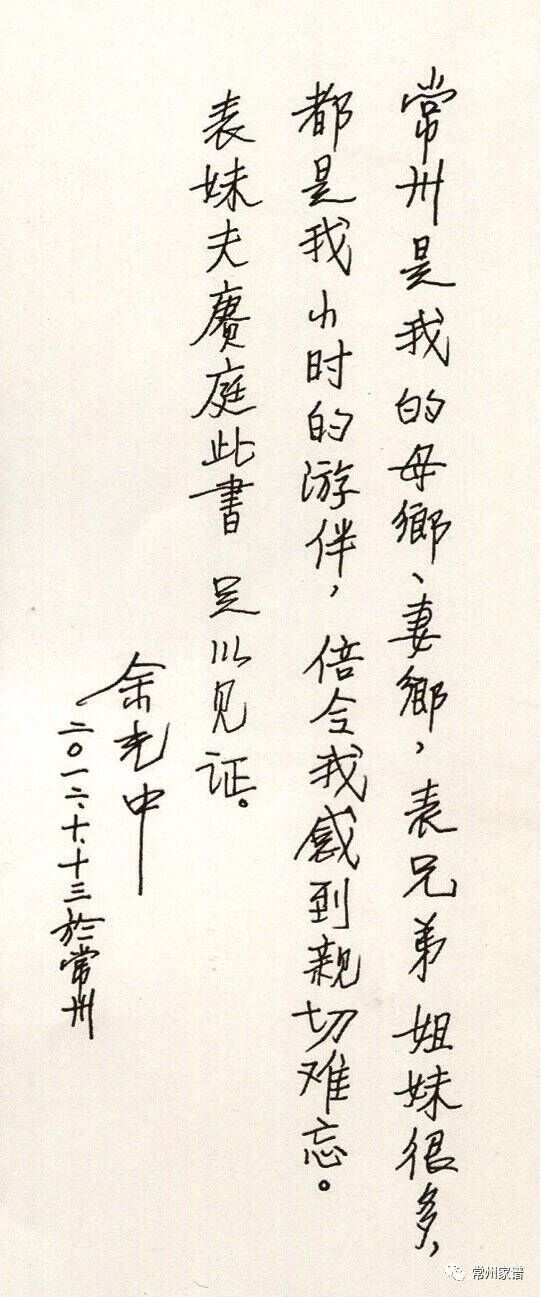 常州是我的母鄉、妻鄉，表兄弟姐妹很多，
都是我小时的游伴，倍令我感到親切难忘。
表妹夫赓庭此書 足以见证。
余光中
二〇一二、十、十三於常州
常州家谱